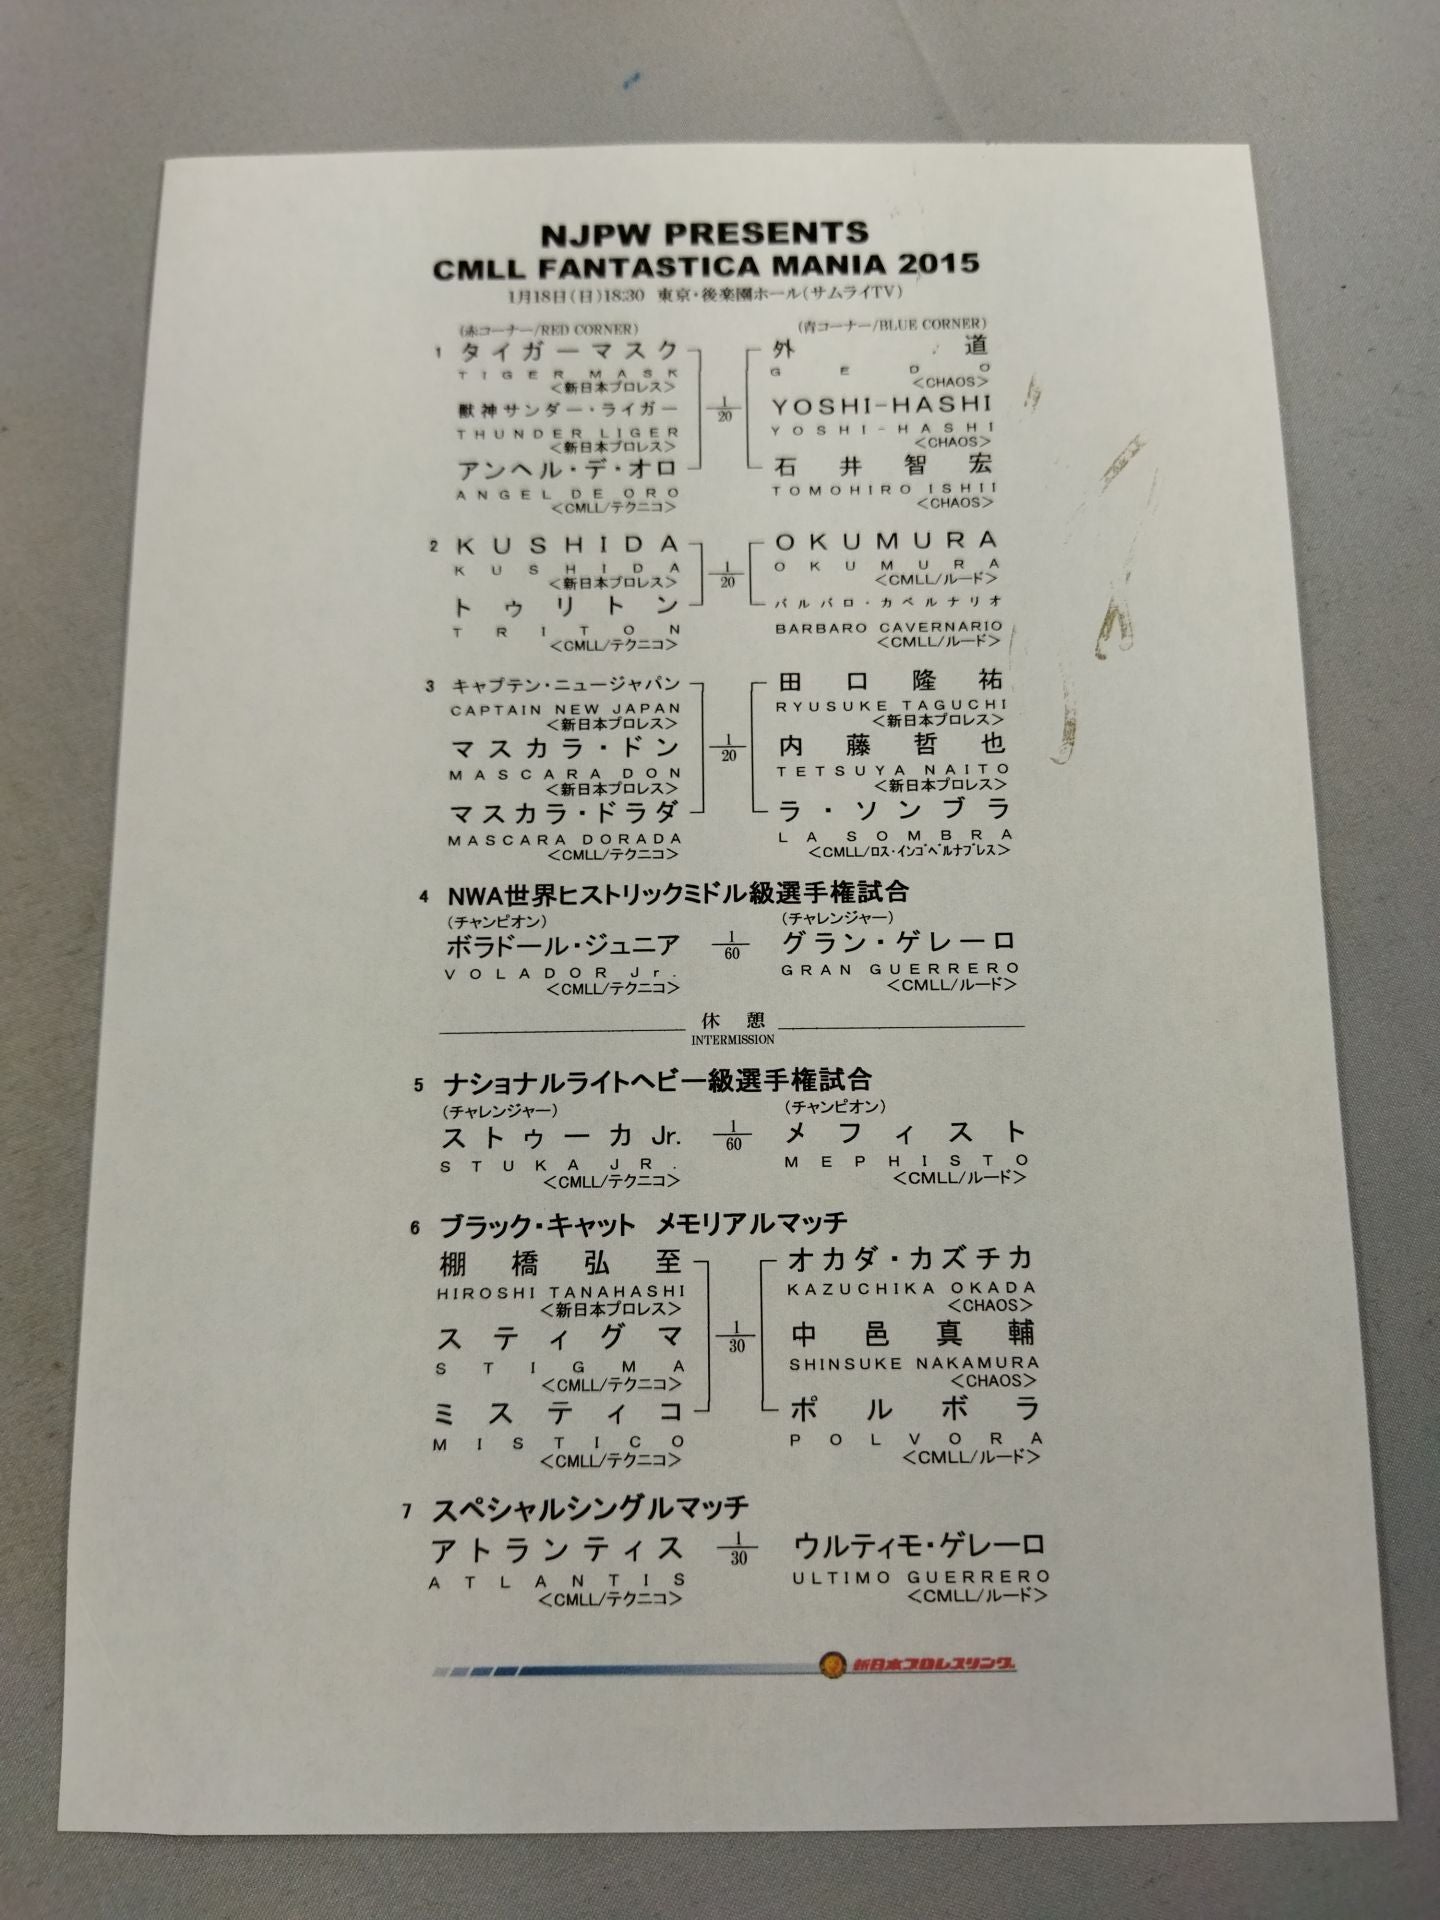 NJPW PRESENTS
CMLL FANTASTICA MANIA 2015
1月18日(日)18:30 東京・後楽園ホール(サムライTV)
(赤コーナー/RED CORNER) (青コーナー/BLUE CORNER)
1 タイガーマスク 外道
TIGER MASK GEDO
<新日本プロレス> <CHAOS>
獣神サンダー・ライガー 1/20 YOSHI-HASHI
THUNDER LIGER YOSHI-HASHI
<新日本プロレス> <CHAOS>
アンヘル・デ・オロ 石井智宏
ANGEL DE ORO TOMOHIRO ISHII
<CMLL/テクニコ> <CHAOS>
2 KUSHIDA OKUMURA
KUSHIDA OKUMURA
<新日本プロレス> 1/20 <CMLL/ルード>
トゥリトン バルバロ・カベルナリオ
TRITON BARBARO CAVERNARIO
<CMLL/テクニコ> <CMLL/ルード>
3 キャプテン・ニュージャパン 田口隆祐
CAPTAIN NEW JAPAN RYUSUKE TAGUCHI
<新日本プロレス> <新日本プロレス>
マスカラ・ドン 1/20 内藤哲也
MASCARA DON TETSUYA NAITO
<新日本プロレス> <新日本プロレス>
マスカラ・ドラダ ラ・ソンブラ
MASCARA DORADA LA SOMBRA
<CMLL/テクニコ> <CMLL/ロス・インゴベルナブレス>
4 NWA世界ヒストリックミドル級選手権試合
(チャンピオン) (チャレンジャー)
ボラドール・ジュニア 1/60 グラン・ゲレーロ
VOLADOR Jr. GRAN GUERRERO
<CMLL/テクニコ> <CMLL/ルード>
休憩
INTERMISSION
5 ナショナルライトヘビー級選手権試合
(チャレンジャー) (チャンピオン)
ストゥーカJr. 1/60 メフィスト
STUKA JR. MEPHISTO
<CMLL/テクニコ> <CMLL/ルード>
6 ブラック・キャット メモリアルマッチ
棚橋弘至 オカダ・カズチカ
HIROSHI TANAHASHI KAZUCHIKA OKADA
<新日本プロレス> <CHAOS>
スティグマ 1/30 中邑真輔
STIGMA SHINSUKE NAKAMURA
<CMLL/テクニコ> <CHAOS>
ミスティコ ポルボラ
MISTICO POLVORA
<CMLL/テクニコ> <CMLL/ルード>
7 スペシャルシングルマッチ
アトランティス 1/30 ウルティモ・ゲレーロ
ATLANTIS ULTIMO GUERRERO
<CMLL/テクニコ> <CMLL/ルード>
新日本プロレスリング